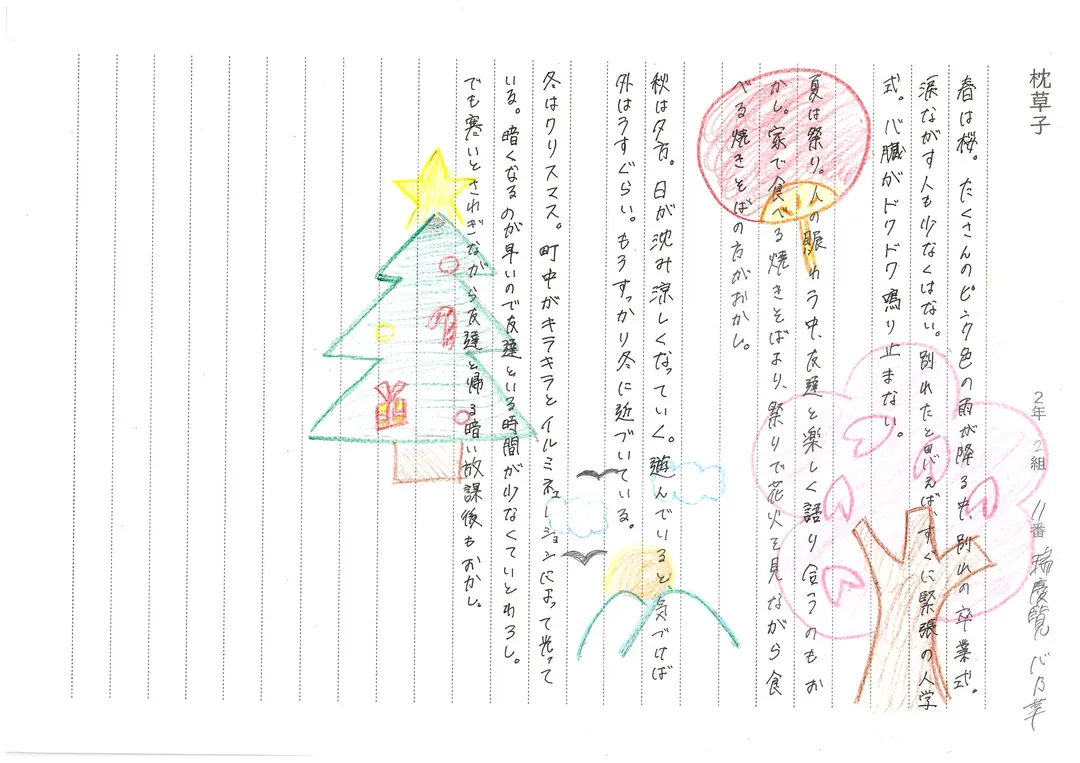 枕草子
2年 2組 11番 瑞慶覧 心乃華
春は桜。たくさんのピンク色の雨が降るも、別れの卒業式。
涙ながす人も少なくはない。別れたと思えば、すぐに緊張の入学
式。心臓がドクドク鳴り止まない。
夏は祭り。人の賑わう中、友達と楽しく語り合うのもお
かし。家で食べる焼きそばより、祭りで花火を見ながら食
べる焼きそばの方がおかし。
秋は夕方。日が沈み涼しくなっていく。遊んでいると、気づけば
外はうすぐらい。もうすっかり冬に近づいている。
冬はクリスマス。町中がキラキラとイルミネーションによって光って
いる。暗くなるのが早いので友達といる時間が少なくていとわろし。
でも寒いとさわぎながら友達と帰る暗い放課後もおかし。